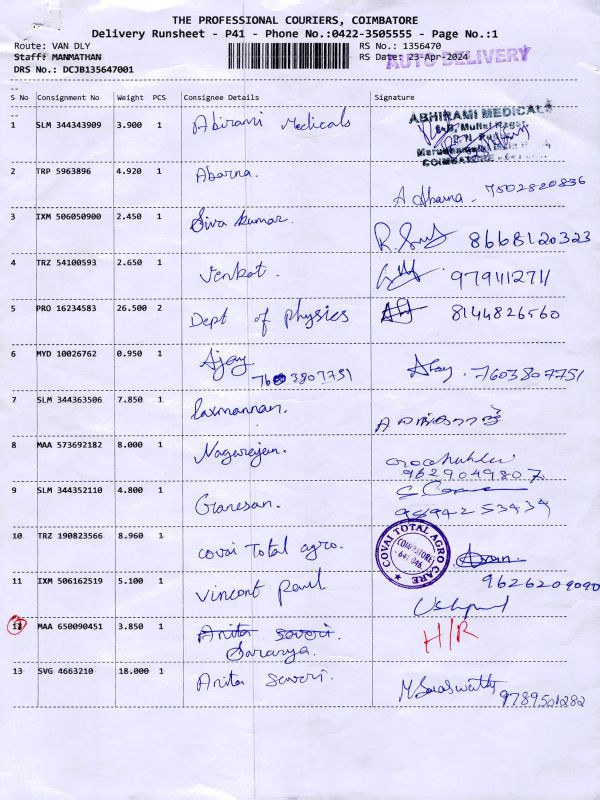 THE PROFESSIONAL COURIERS, COIMBATORE
Delivery Runsheet - P41 - Phone No.:0422-3505555 - Page No.:1
Route: VAN DLY RS No.: 1356470
Staff: MANMATHAN RS Date: 23-Apr-2024 AUTO DELIVERY
DRS No.: DCJB135647001
S No Consignment No Weight PCS Consignee Details Signature
1 SLM 344343909 3.900 1 Abirami Medicals ABHIRAMI MEDICALS
COIMBATORE
2 TRP 5963896 4.920 1 Abarna. A Abarna. 7502820836
3 IXM 506050900 2.450 1 Siva kumar. 8668120323
4 TRZ 54100593 2.650 1 Venkat. 9791112711
5 PRO 16234583 26.500 2 Dept of Physics 8144826560
6 MYD 10026762 0.950 1 Ajay Ajay. 7603807751
7603807751
7 SLM 344363506 7.850 1 Laxmannan.
8 MAA 573692182 8.000 1 Nagarajan.
9629049807
9 SLM 344352110 4.800 1 Ganesan.
10 TRZ 190823566 8.960 1 Covai Total agro. COVAI TOTAL AGRO CARE
COIMBATORE
641 046
11 IXM 506162519 5.100 1 Vincent Paul 9626209090
12 MAA 650090451 3.850 1 Anita Saveri. H/R
Saranya.
13 SVG 4663210 18.000 1 Anita Saveri. M Saraswathy 9789501282